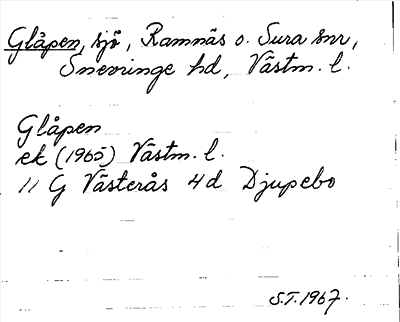 Glåpen, sjö, Ramnäs o. Sura snr,
Snevringe hd, Västm. l.
Glåpen
ek (1965) Västm. l.
11 G Västerås 4d Djupebo
S.T. 1967.